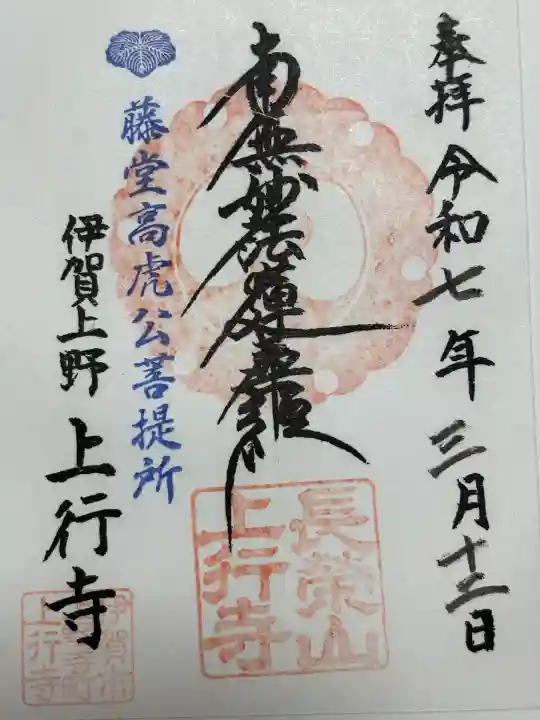 奉拝 令和七年 三月十二日
南無妙法蓮華経
長榮山
上行寺
藤堂高虎公菩提所
伊賀上野 上行寺
伊賀市
上行寺